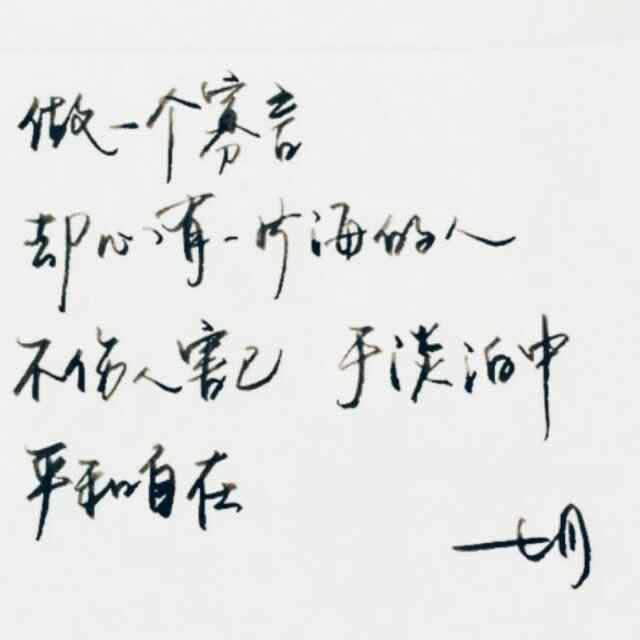 做一个寡言
却心有一片海的人
不伤人害己 于淡泊中
平和自在